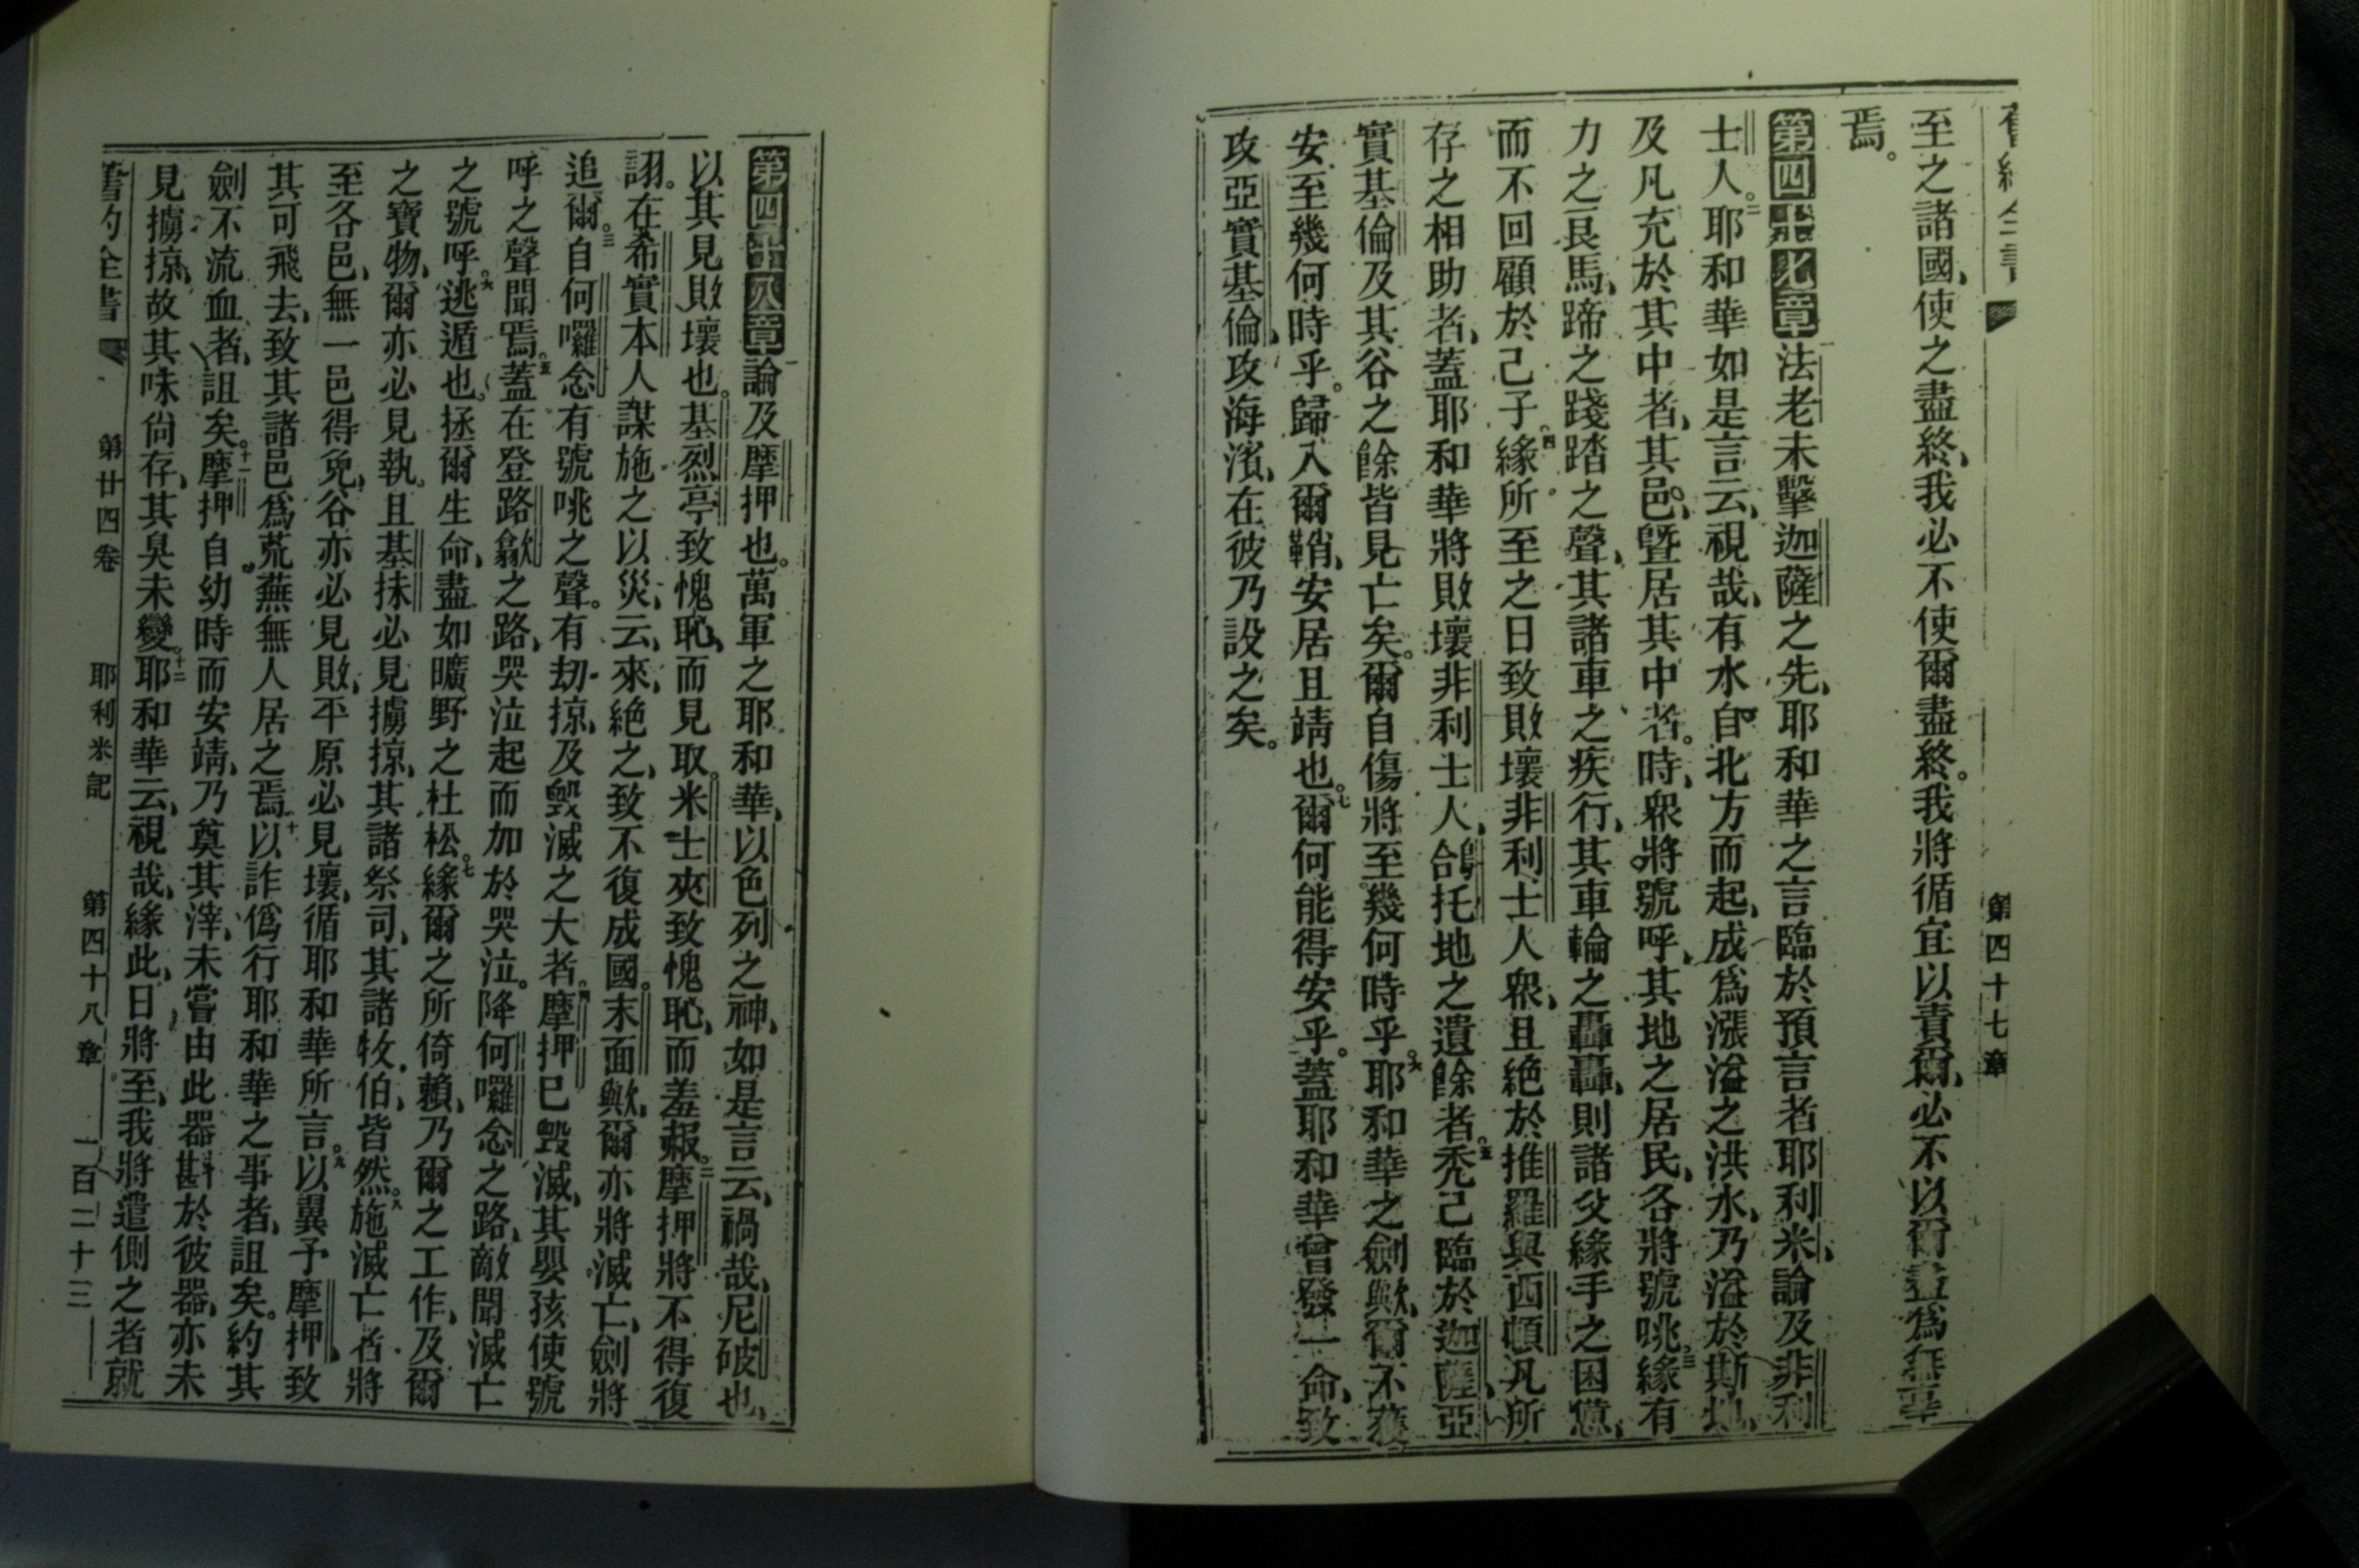 舊約全書 第四十七章
至之諸國、使之盡終、我必不使爾盡終。我將循宜以責爾、必不以爾盡爲無辜
焉。
第四十七章法老未擊迦薩之先、耶和華之言臨於預言者耶利米、論及非利
士人。二耶和華如是言云、視哉、有水自北方而起、成爲漲溢之洪水、乃溢於斯地、
及凡充於其中者、其邑、曁居其中者。時、衆將號呼、其地之居民、各將號咷、三緣有
力之㒵馬、蹄之踐踏之聲、其諸車之疾行、其車輪之轟轟、則諸父緣手之困憊、
而不回顧於己子。四緣所至之日致敗壞非利士人衆、且絶於推羅與西頓凡所
存之相助者、蓋耶和華將敗壞非利士人、䧻托地之遺餘者。五禿己臨於迦薩、亞
實基倫及其谷之餘皆見亡矣。爾自傷將至幾何時乎。六耶和華之劍歟、爾不獲
安至幾何時乎。歸入爾鞘、安居且靖也。七爾何能得安乎。蓋耶和華曾發一命、致
攻亞實基倫、攻海濱、在彼乃設之矣。
第四十八章論及摩押也。萬軍之耶和華、以色列之神、如是言云、禍哉、尼破也、
以其見敗壞也。基烈亭致愧恥、而見取。米士夾致愧恥、而羞赧。二摩押將不得復
詡。在希實本人謀施之以災、云、來、絶之、致不復成國。末面歟、爾亦將滅亡、劍將
追爾。三自何囉念有號咷之聲。有劫掠、及毀滅之大者。四摩押已毀滅、其嬰孩使號
呼之聲聞焉。五蓋在登路歙之路、哭泣起而加於哭泣。降何囉念之路、敵聞滅亡
之號呼。六逃遁也。拯爾生命、盡如曠野之杜松。七緣爾之所倚賴、乃爾之工作、及爾
之寶物、爾亦必見執。且基抹必見擄掠、其諸祭司、其諸牧伯、皆然。八施滅亡者將
至各邑、無一邑得免、谷亦必見敗、平原必見壞、循耶和華所言。九以翼予摩押、致
其可飛去、致其諸邑爲荒蕪無人居之焉。十以詐僞行耶和華之事者、詛矣。約其
劍不流血者、詛矣。十一摩押自幼時而安靖、乃奠其滓、未嘗由此器斟於彼器、亦未
見擄掠、故其味尙存、其臭未變。十二耶和華云、視哉、緣此、日將至、我將遣側之者就
舊約全書 第廿四卷 耶利米記 第四十八章 一百二十三